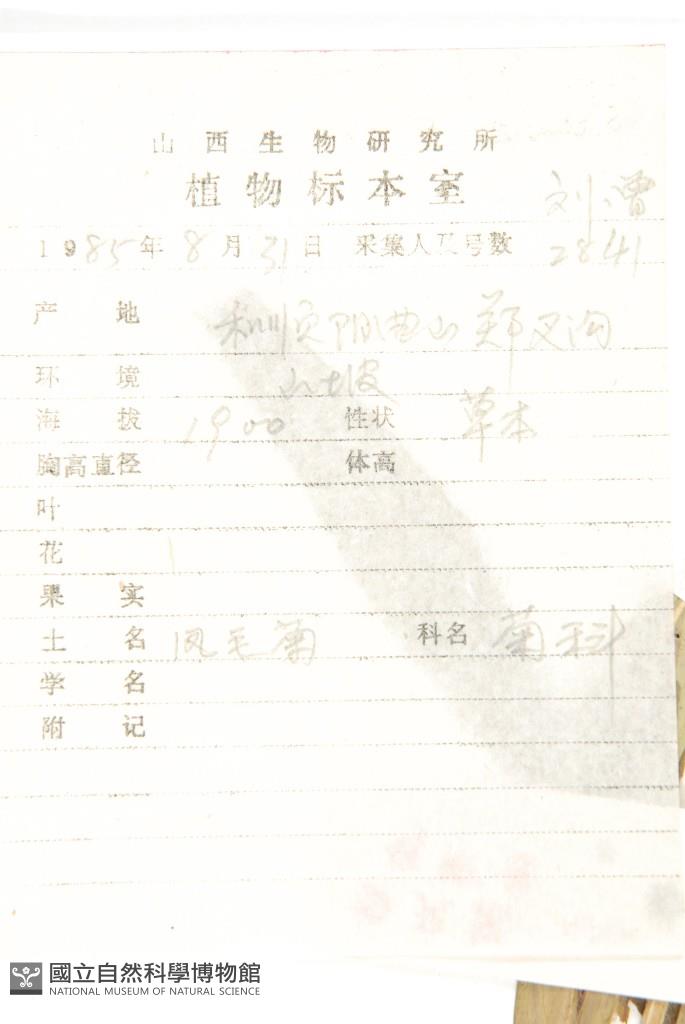 山西生物研究所
植物标本室
刘、曾
1985年8月31日 采集人及号数 2841
产地 阳曲山
环境 山坡
海拔 1900 性状 草本
胸高直径 体高
叶
花
果实
土名 凤毛菊 科名 菊科
学名
附记
國立自然科學博物館
NATIONAL MUSEUM OF NATURAL SCIENCE